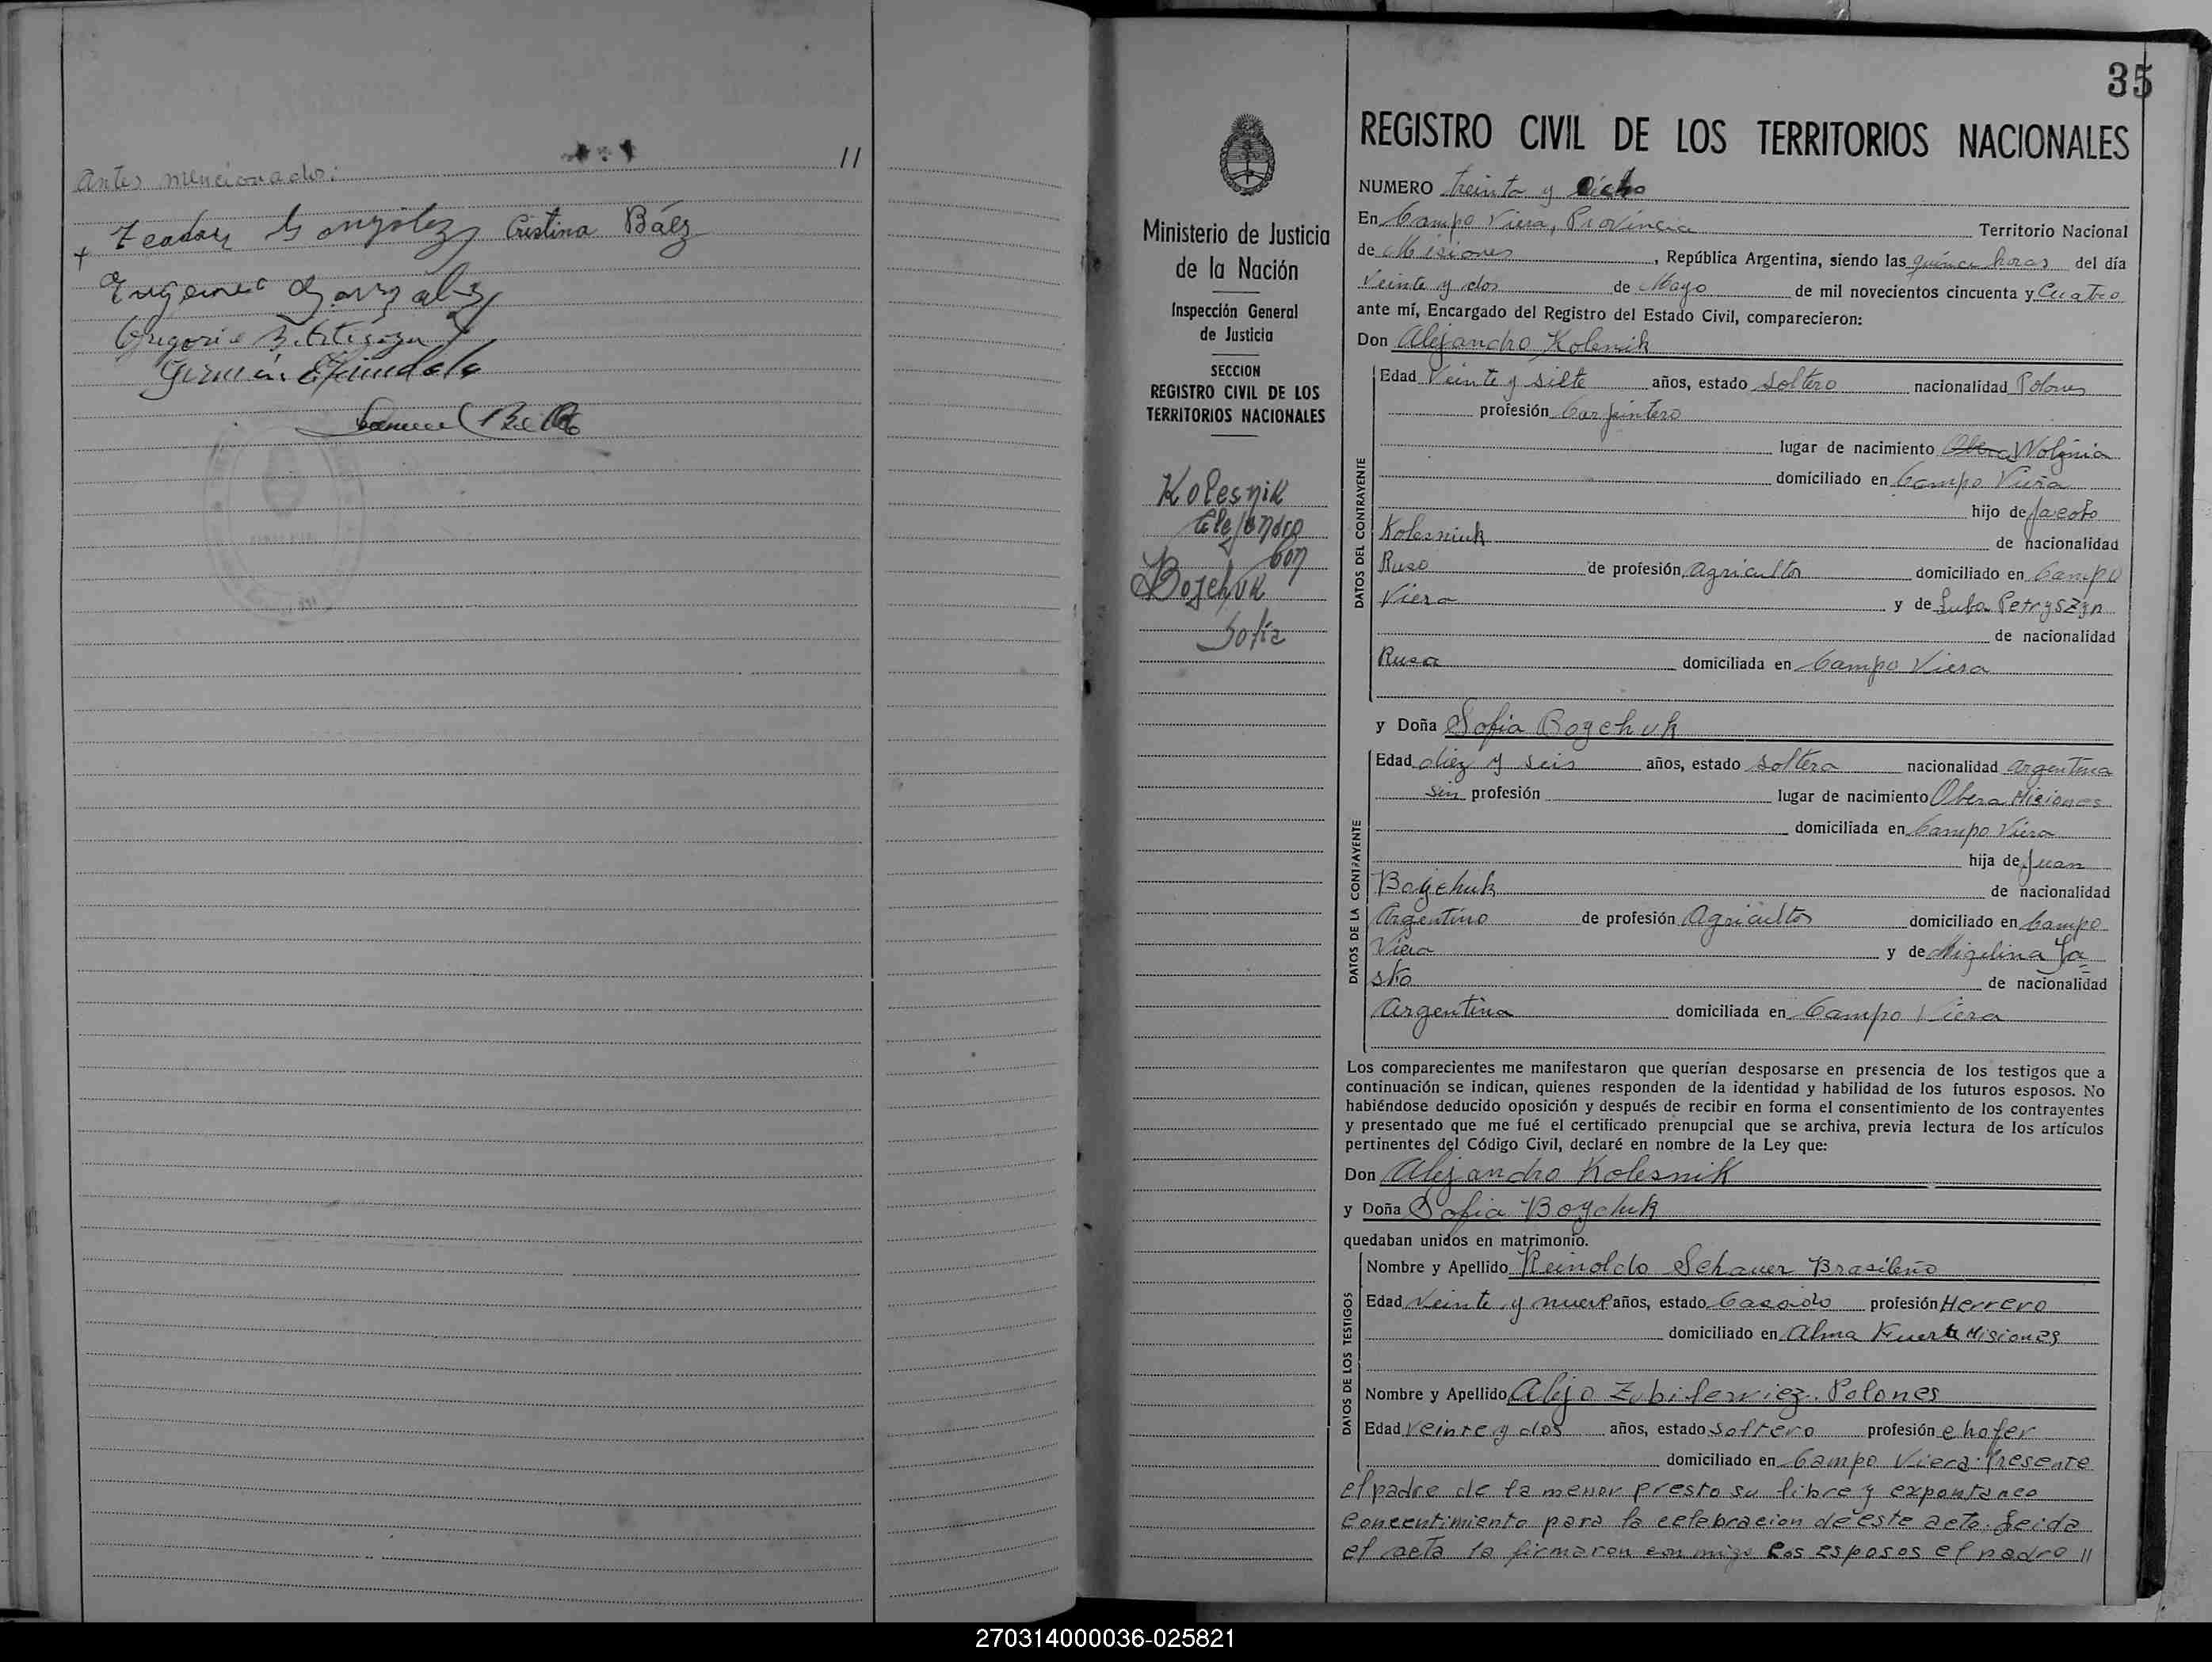 antes mencionados: 11
Cristina Báez
Kolesnik
Alejandro
con
Bozchuk
Sofía
Ministerio de Justicia
de la Nación
Inspección General
de Justicia
SECCION
REGISTRO CIVIL DE LOS
TERRITORIOS NACIONALES
35
REGISTRO CIVIL DE LOS TERRITORIOS NACIONALES
NUMERO treinta y ocho
En Campo Viera, Provincia Territorio Nacional
de Misiones, República Argentina, siendo las quince horas del día
Veinte y dos de Mayo de mil novecientos cincuenta y Cuatro
ante mí, Encargado del Registro del Estado Civil, comparecieron:
Don Alejandro Kolesnik
DATOS DEL CONTRAYENTE
Edad Veinte y siete años, estado soltero nacionalidad Polones
profesión Carpintero
lugar de nacimiento Wolynia
domiciliado en Campo Viera
hijo de Jacobo
Kolesniuk de nacionalidad
Ruso de profesión agricultor domiciliado en Campo
Viera y de Luba Petryszyn
de nacionalidad
Rusa domiciliada en Campo Viera
y Doña Sofia Bozchuk
DATOS DE LA CONTRAYENTE
Edad diez y seis años, estado soltera nacionalidad argentina
sin profesión lugar de nacimiento Obera Misiones
domiciliada en Campo Viera
hija de Juan
Boychuk de nacionalidad
Argentino de profesión Agricultor domiciliado en Campo
Viera y de Migelina Ja=
sko de nacionalidad
Argentina domiciliada en Campo Viera
Los comparecientes me manifestaron que querían desposarse en presencia de los testigos que a
continuación se indican, quienes responden de la identidad y habilidad de los futuros esposos. No
habiéndose deducido oposición y después de recibir en forma el consentimiento de los contrayentes
y presentado que me fué el certificado prenupcial que se archiva, previa lectura de los artículos
pertinentes del Código Civil, declaré en nombre de la Ley que:
Don Alejandro Kolesnik
y Doña Sofia Boychuk
quedaban unidos en matrimonio.
DATOS DE LOS TESTIGOS
Nombre y Apellido Reinoldo Schauer Brasileño
Edad Veinte y nueve años, estado Casado profesión Herrero
domiciliado en Alma Fuerte Misiones
Nombre y Apellido Alejo Polones
Edad Veinte y dos años, estado soltero profesión chofer
domiciliado en Campo Viera. Presente
el padre de la menor presto su libre y expontaneo
concentimiento para la celebracion de este acto. Leida
el acta la firmaron con migo los esposos el padre 11
270314000036-025821